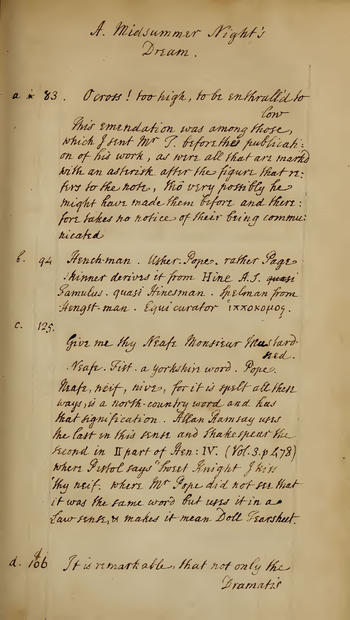 A. Midsummer Night's
Dream.
a * 83. O cross! too high, to be enthrall'd to
low
This emendation was among those,
which I sent Mr T. before the publicati-
on of his work, as were all that are markd
with an asterisk after the figure that re-
fers to the note, tho very possibly he
might have made them before and there-
fore takes no notice of their being commu-
nicated
b. 94 Hench-man. Usher. Pope. rather Page
Skinner derives it from Hine A.S. quasi
Famulus. quasi Hinesman. Spelman from
Hengst-man. Equi curator ιπποκομος.
c. 125.
Give me thy Neafe Monsieur Mustard-
sed.
Neafe. Fist. a Yorkshire word. Pope.
Neafe, neif, nive, for it is spelt all these
ways, is a north-country word and has
that signification. Allan Ramsay uses
the last in this sense and Shakespear the
second in II part of Hen: IV. (Vol. 3. p 478)
where Pistol says Sweet Knight I kiss
thy neif. where Mr Pope did not see that
it was the same word but uses it in a
Law sense, & makes it mean Doll Tearsheet.
d. 166 It is remarkable, that not only the
Dramatis